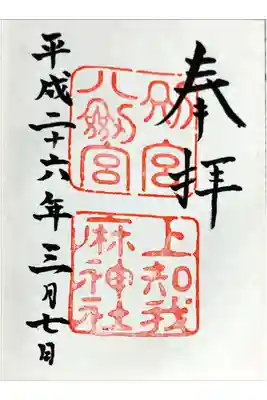 奉拝
別宮
八剱宮
上知我
麻神社
平成二十六年三月七日